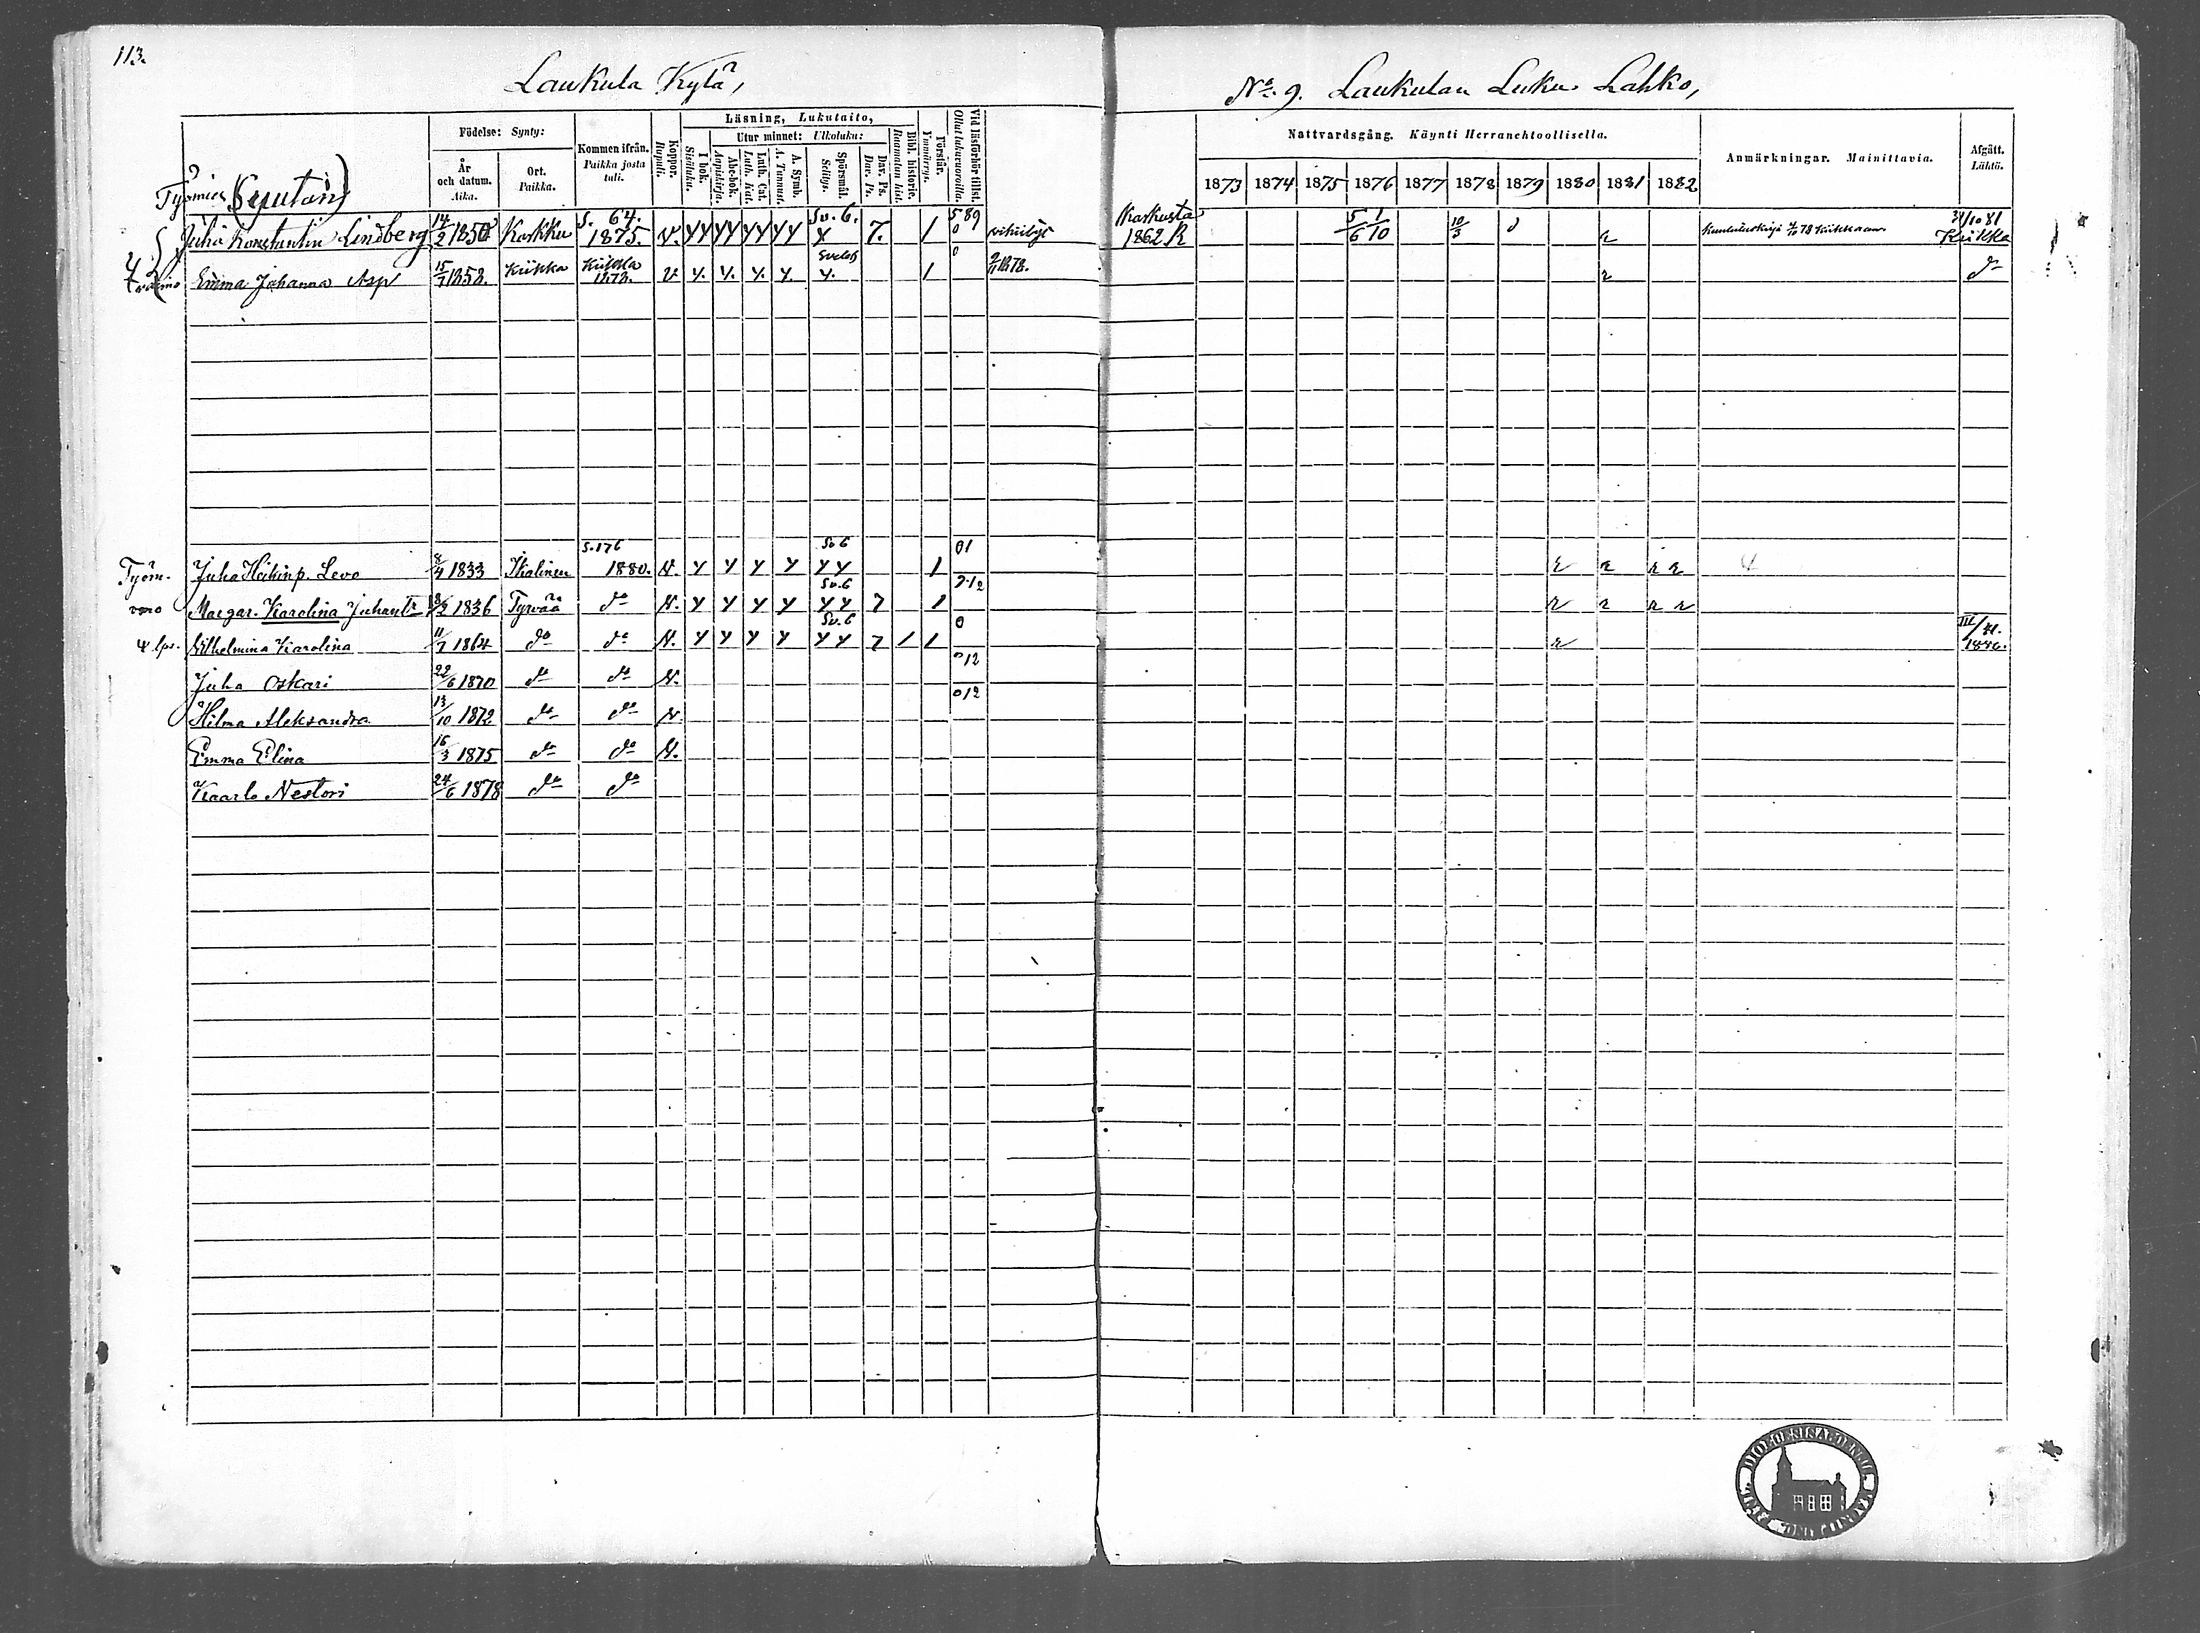 113.
Laukula Kylä,
No. 9. Laukulan Luku Lahko,
Födelse: Synty:
Kommen ifrån. Paikka josta tuli.
Koppor. Rupuli.
Läsning, Lukutaito,
I bok. Sisäluku.
Utur minnet: Ulkoluku:
Abc-bok. Aapiskirja.
Luth. Cat. Luth. Kat.
A. Symb. A. Tunnust.
Spörsmål. Selitys.
Dav. Ps. Dav. Ps.
Bibl. historie. Raamatun hist.
Förstår. Ymmärrys.
Vid läsförhör tillst. Ollut lukuvuoroilla.
År och datum. Aika.
Ort. Paikka.
Nattvardsgång. Käynti Herranehtoollisella.
Anmärkningar. Mainittavia.
Afgått. Lähtö.
1873 1874 1875 1876 1877 1878 1879 1880 1881 1882
Juha Konstantin Lindberg 14/2 1850 Karkku S. 64. 1875. v. Sv. 6. 7. 1 5 89 Karkusta 1862 R 5/6 1/10 10/3 r 31/10 81 Kiikka
vaimo Emma Johanna Asp 15/7 1858. Kiikka Kiikka 1878. v y. y. y. y. y. 1 0 1878. r do
Työm. Juha Heikinp. Levo 8/4 1833 Ikalinen S. 176 1880. v. y y y y Sv. 6 y y 1 01 r r r r
vmo Margar. Karolina Juhant. 1836 Tyrvää do v. y y y y Sv. 6 y y 7 1 r r r r
4 lps. Vilhelmina Karolina 11/7 1864 do do v. y y y y Sv. 6 y y 7 1 1 0 r
Juha Oskari 22/6 1870 do do v. 012
Hilma Aleksandra 13/10 1872 do do v 012
Emma Elina 16/3 1875 do do v.
Kaarlo Nestori 24/6 1878 do do